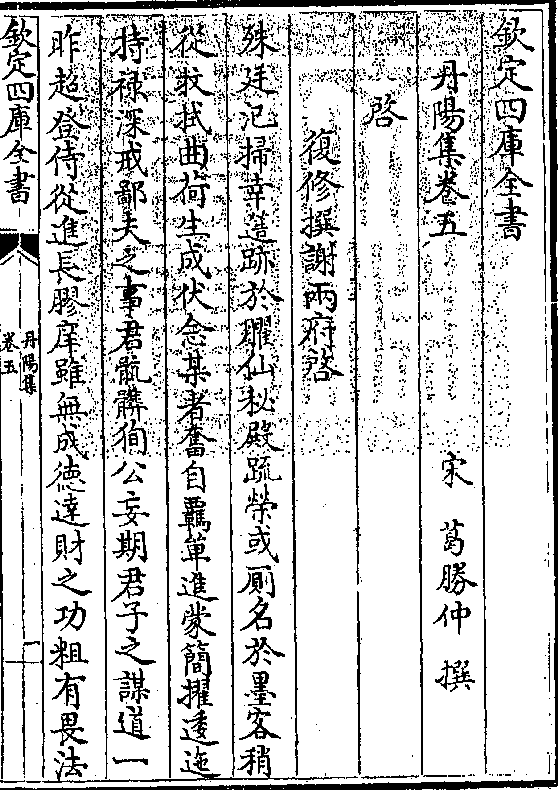 欽定四庫全書
丹陽集卷五
宋 葛勝仲 撰
啓
復修撰謝兩府啓
殊廷汜掃幸造跡於臞仙秘殿疏榮或厠名於墨客稍
從牧拭曲荷生成伏念某者奮自羈單進蒙簡擢逶迤
持禄深戒鄙夫之事君骯髒徇公妄期君子之謀道一
昨超登侍從進長膠庠雖無成徳達財之功粗有畏法
欽定四庫全書
丹陽集
卷五
一